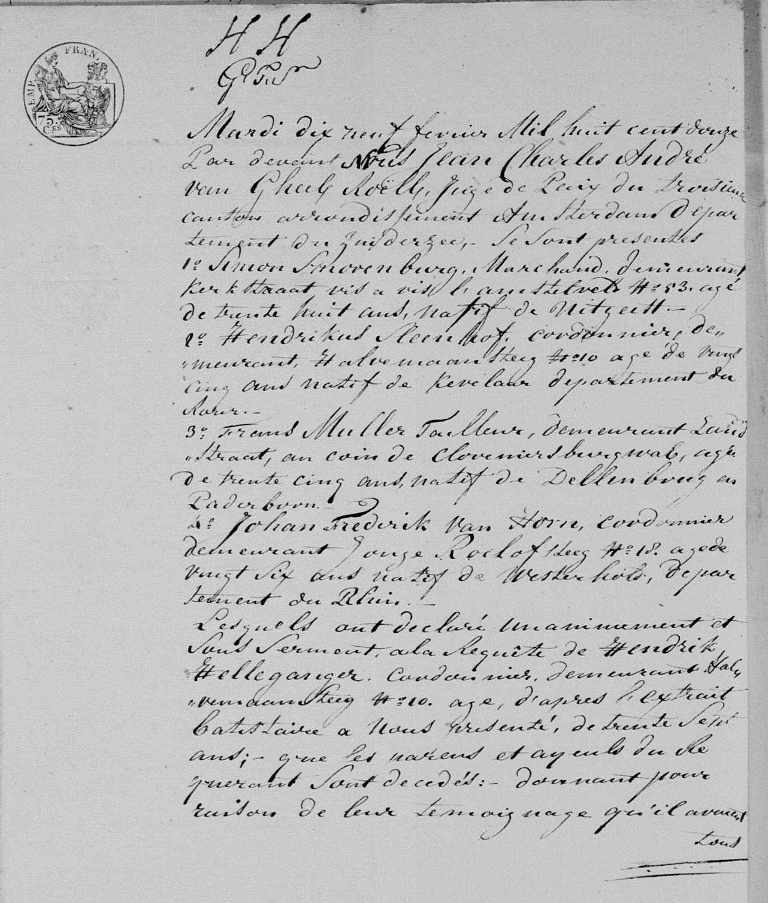 EMP. FRAN.
75. Ces
H H
Mardi dix neuf fevrier Mil huit cent douze
Par devant Nous Jean Charles André
van Gheel Roëll, Juge de Paix du troisieme
canton arrondissement Amsterdam Depar
tement du Zuiderzee,- Se sont presentés
1º Simon Snovenburg, Marchand, demeurant
Kerkstraat vis a vis l'amstelveld Nº 53. agé
de trente huit ans, natif de Uitgeest.-
2º Hendrikus Steenhof, cordonnier, de„
„meurant, Halvemaansteeg Nº 10 age de vingt
cinq ans natif de Kevelaar departement du
Roer.-
3º Frans Muller Tailleur, demeurant
„Straat, au coin de Cloveniersburgwal, agé
de trente cinq ans, natif de Dellenbrug en
Paderborn.-
4º Johan Frederik van Horn, cordonnier
demeurant Jonge Roelofsteeg Nº 18. age de
vingt six ans natif de Westerholt, Depar
tement du Rhin.-
Lesquels ont declaré unanimement et
sous Serment, a la Requête de Hendrik
Helleganger. cordonnier, demeurant Hal„
„vemaansteeg Nº 10. age, d'apres l'extrait
batistaire a Nous presenté, de trente Sept
ans;- que les parens et ayeuls du Re
querant sont decedés:- donnant pour
raison de leur temoignage qu'il avoient
tous